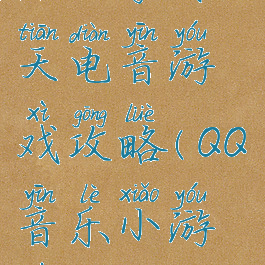 tiān diàn yīn yóu
天电音游
xì gōng lüè
戏攻略(QQ
yīn lè xiǎo yóu
音乐小游